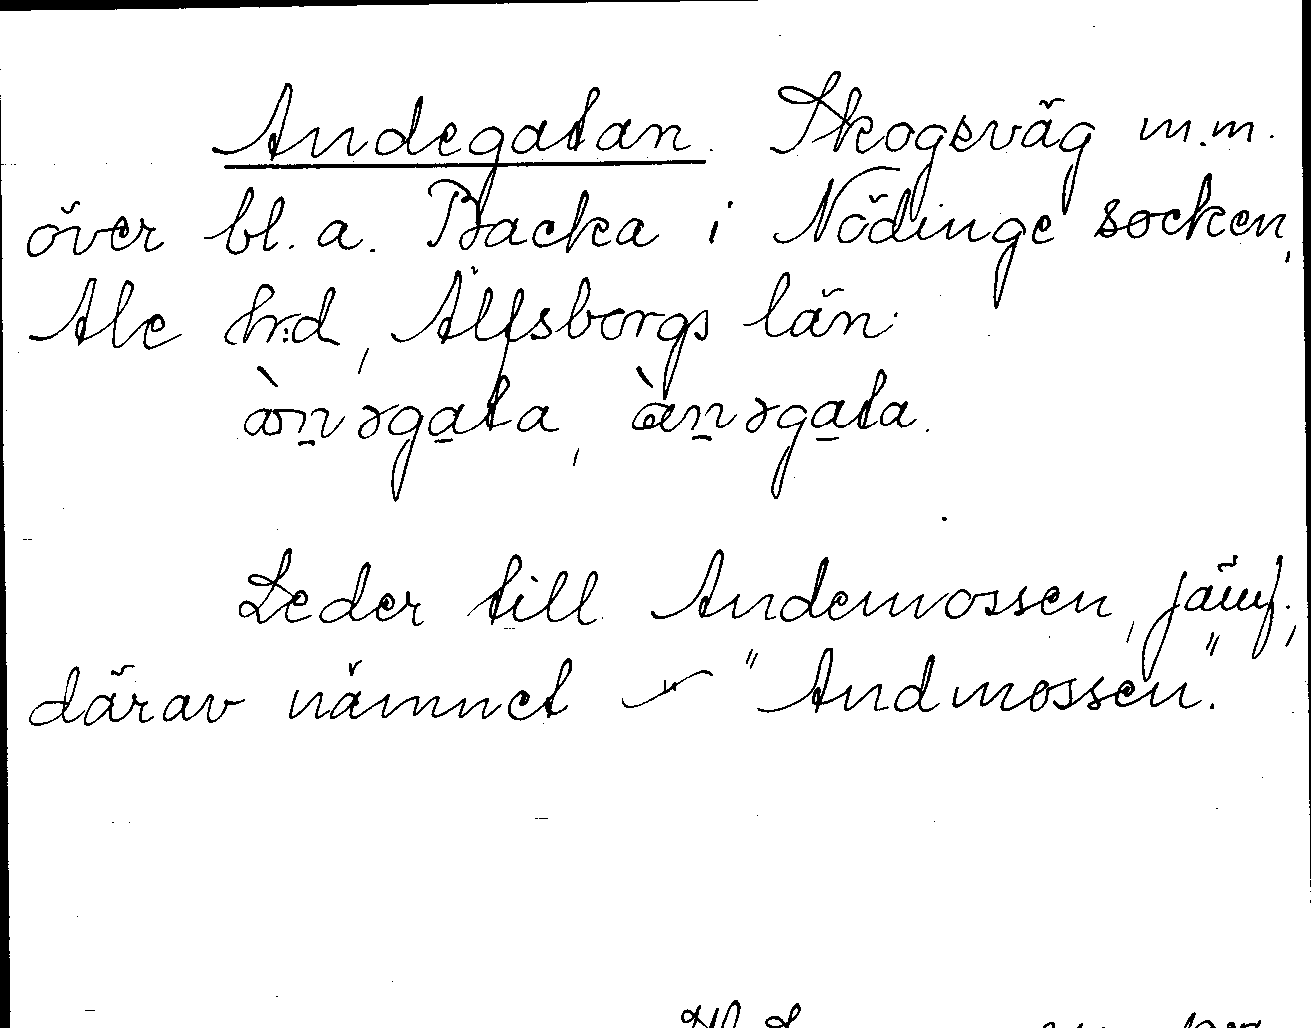 Andegatan. Skogsväg m.m.
över bl.a. Backa i Nödinge socken,
Ale h:d, Älfsborgs län.
àn̲əga̲ta, àn̲əga̲ta.
Leder till Andemossen, jämf.,
därav nämnet "Andmossen".